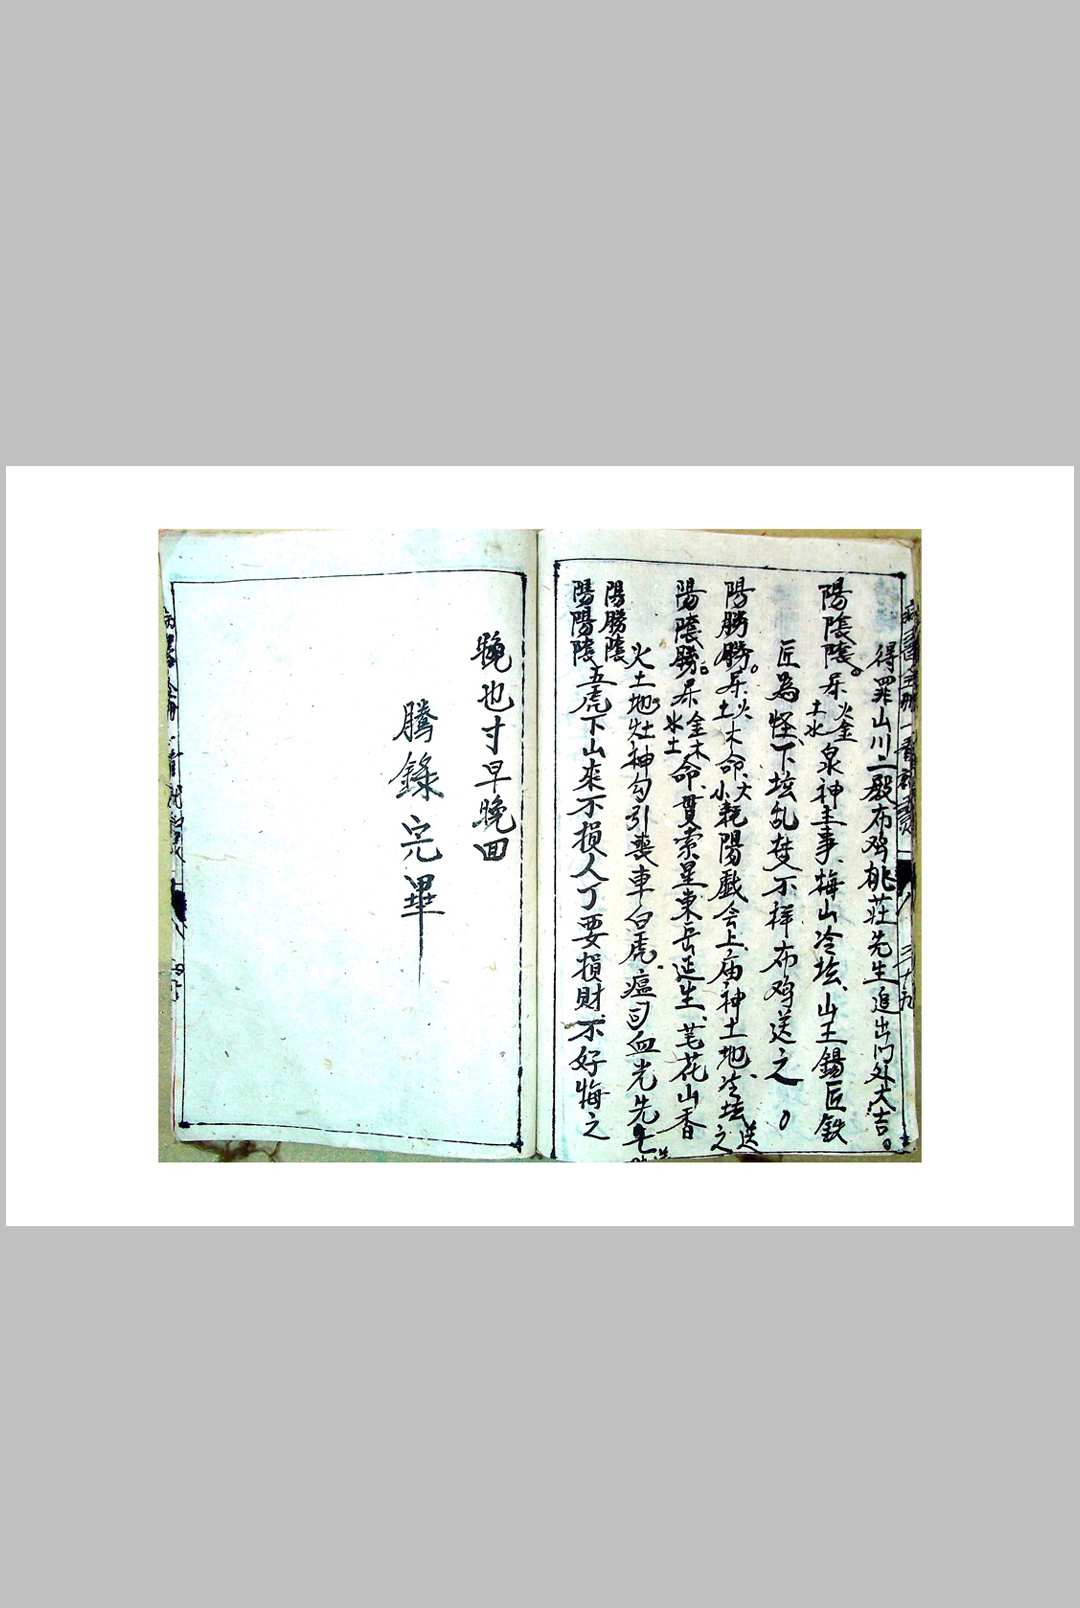 得罪山川二殿布鸡桃莊先生追出门外大吉
陽陰陰
火金
土水
泉神主事、梅山冷坛、山王錫匠鉄
匠為怪、下坛乱 不祥布鸡送之
陽勝勝
火木
土
命、大小耗陽戱会上庙神土地、冷坛送之
陽陰勝
金木
水土
命、貫索星東岳延生、花山香
火土地灶神勾引喪車白虎、瘟司血光先
陽勝陰
陽陽陰
五虎下山來不損人丁要損財不好悔之
三十九
晚也寸早晚回
騰錄完畢